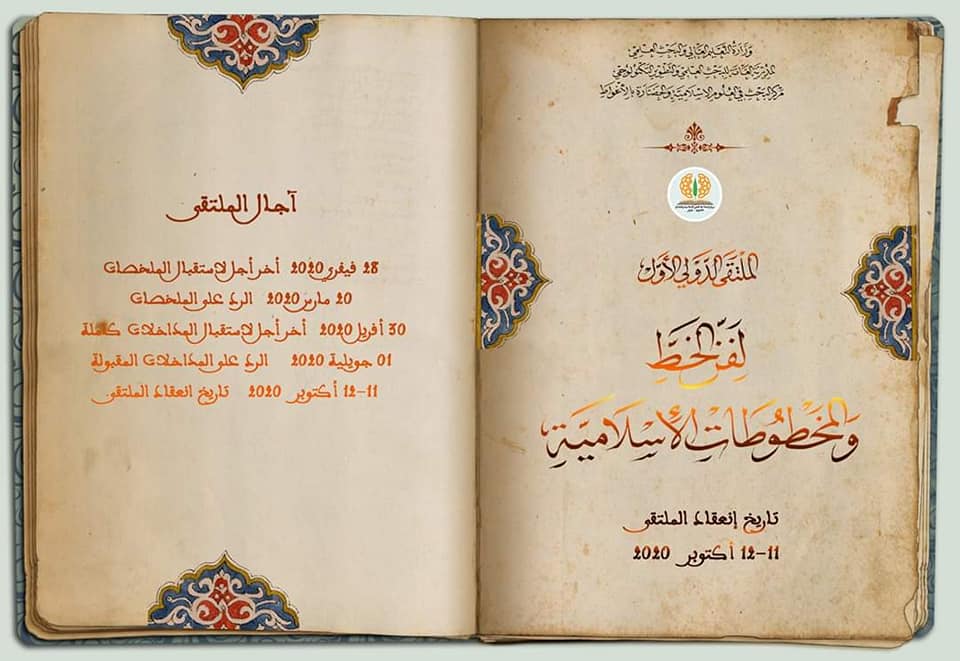 وزارة التعليم العالي والبحث العلمي
المديرية العامة للبحث العلمي والتطوير التكنولوجي
مركز البحث في العلوم الإسلامية والحضارة بالأغواط
الملتقى الدولي الأول
لفن الخط
والمخطوطات الإسلامية
تاريخ إنعقاد الملتقى
11-12 أكتوبر 2020
آجال الملتقى
28 فيفري 2020 آخر أجل لاستقبال الملخصات
20 مارس 2020 الرد على الملخصات
30 أفريل 2020 آخر أجل لاستقبال المداخلات كاملة
01 جويلية 2020 الرد على المداخلات المقبولة
11-12 أكتوبر 2020 تاريخ إنعقاد الملتقى